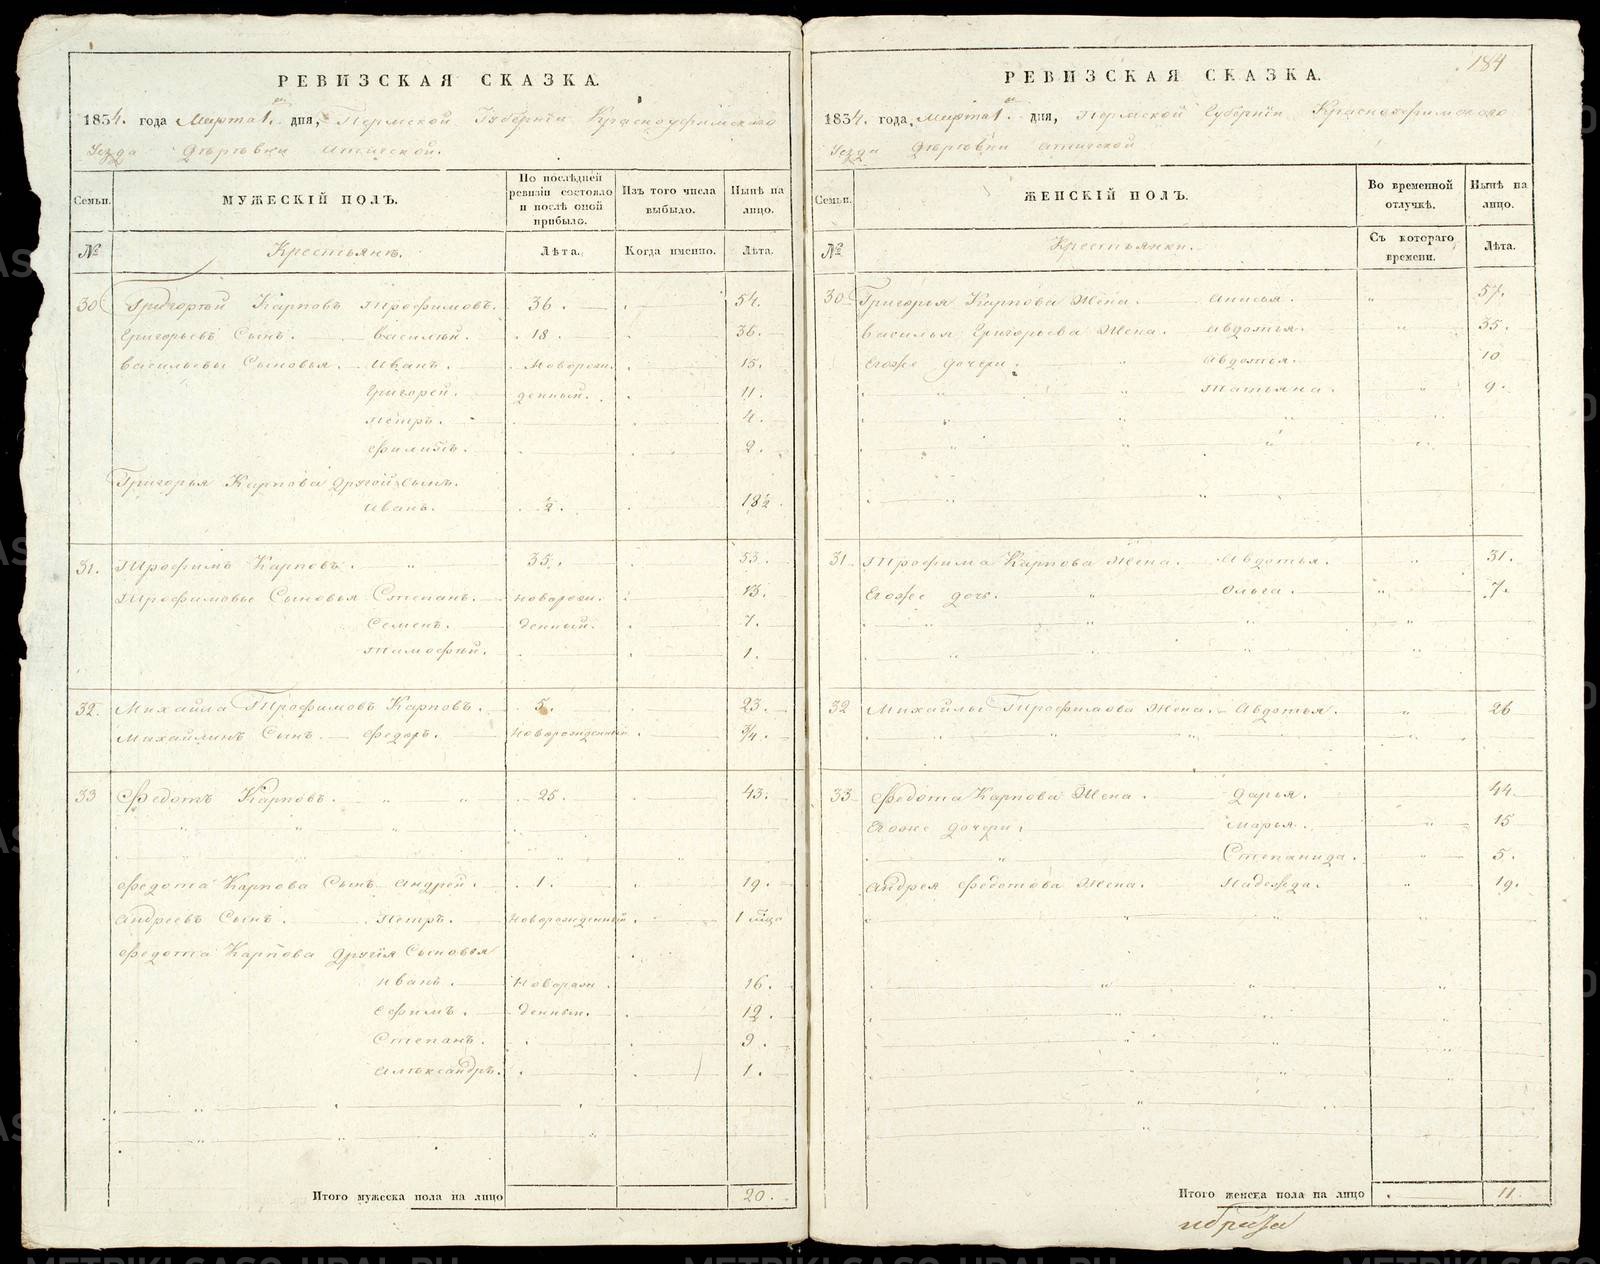 РЕВИЗСКАЯ СКАЗКА.
1834. года Марта 1. дня, Пермской Губерніи Красноуфимскаго
Уезда Деревни Атигской.
Семьи.
МУЖЕСКІЙ ПОЛЪ.
По послѣдней ревизіи состояло и послѣ оной прибыло.
Изъ того числа выбыло.
Нынѣ на лицо.
№
Крестьянъ.
Лѣта.
Когда именно.
Лѣта.
30 Григорѣй Карповъ Трофимовъ. 36. 54.
Григорьевъ Сынъ. Василѣй. 18. 36.
Васильевы Сыновья. Иванъ. Новорож. 15.
Григорей. денный. 11.
Петръ. 4.
Филипъ. 2.
Григорья Карпова другой сынъ.
Иванъ. ½. 18½
31. Трофимъ Карповъ. 35. 53.
Трофимовы Сыновья Степанъ. новорож. 13.
Семенъ. денный. 7.
Тимофѣй. 1.
32. Михайла Трофимовъ Карповъ. 5. 23.
Михайлинъ Сынъ. Федоръ. Новорожденный. ¾.
33 Федотъ Карповъ. 25. 43.
Федота Карпова Сынъ Андрей. 1. 19.
Андреевъ Сынъ. Петръ. Новорожденный. 1 мѣца
Федота Карпова другія Сыновья
Иванъ. Новорож. 16.
Ефимъ. денный. 12.
Степанъ. 9.
Александръ. 1.
Итого мужеска пола на лицо 20.
184
РЕВИЗСКАЯ СКАЗКА.
1834. года, Марта 1. дня, Пермской Губерніи Красноуфимскаго
Уезда Деревни Атигской
Семьи.
ЖЕНСКІЙ ПОЛЪ.
Во временной отлучкѣ.
Нынѣ на лицо.
№
Крестьянки.
Съ котораго времени.
Лѣта.
30 Григорья Карпова Жена. Анисья. 57.
Василья Григорьева Жена. Авдотья. 35.
Егоже дочери. Авдотья. 10
Татьяна. 9.
31. Трофима Карпова Жена. Авдотья. 31.
Егоже дочь. Ольга. 7.
32 Михайлы Трофимова Жена. Авдотья. 26
33 Федота Карпова Жена. Дарья. 44.
Егоже дочери. Марья. 15
Степанида. 5.
Андрея Федотова Жена. Надежда. 19.
Итого женска пола на лицо 11.
METRIKI.GASO-URAL.RU
METRIKI.GASO-URAL.RU